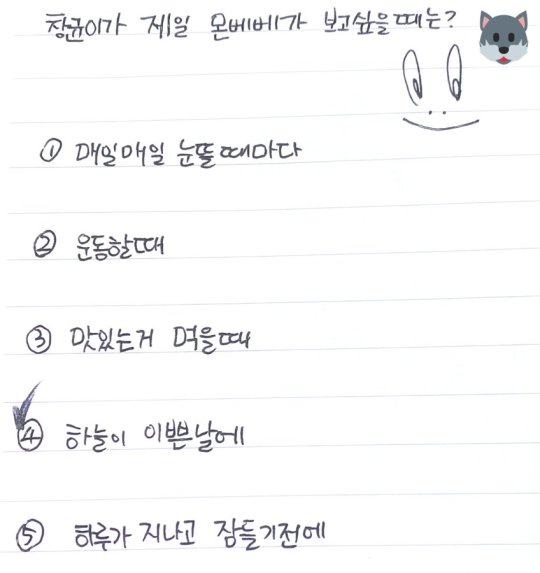 창균이가 제일 몬베베가 보고싶을때는?
① 매일매일 눈뜰때마다
② 운동할때
③ 맛있는거 먹을때
④ 하늘이 이쁜날에
⑤ 하루가 지나고 잠들기전에